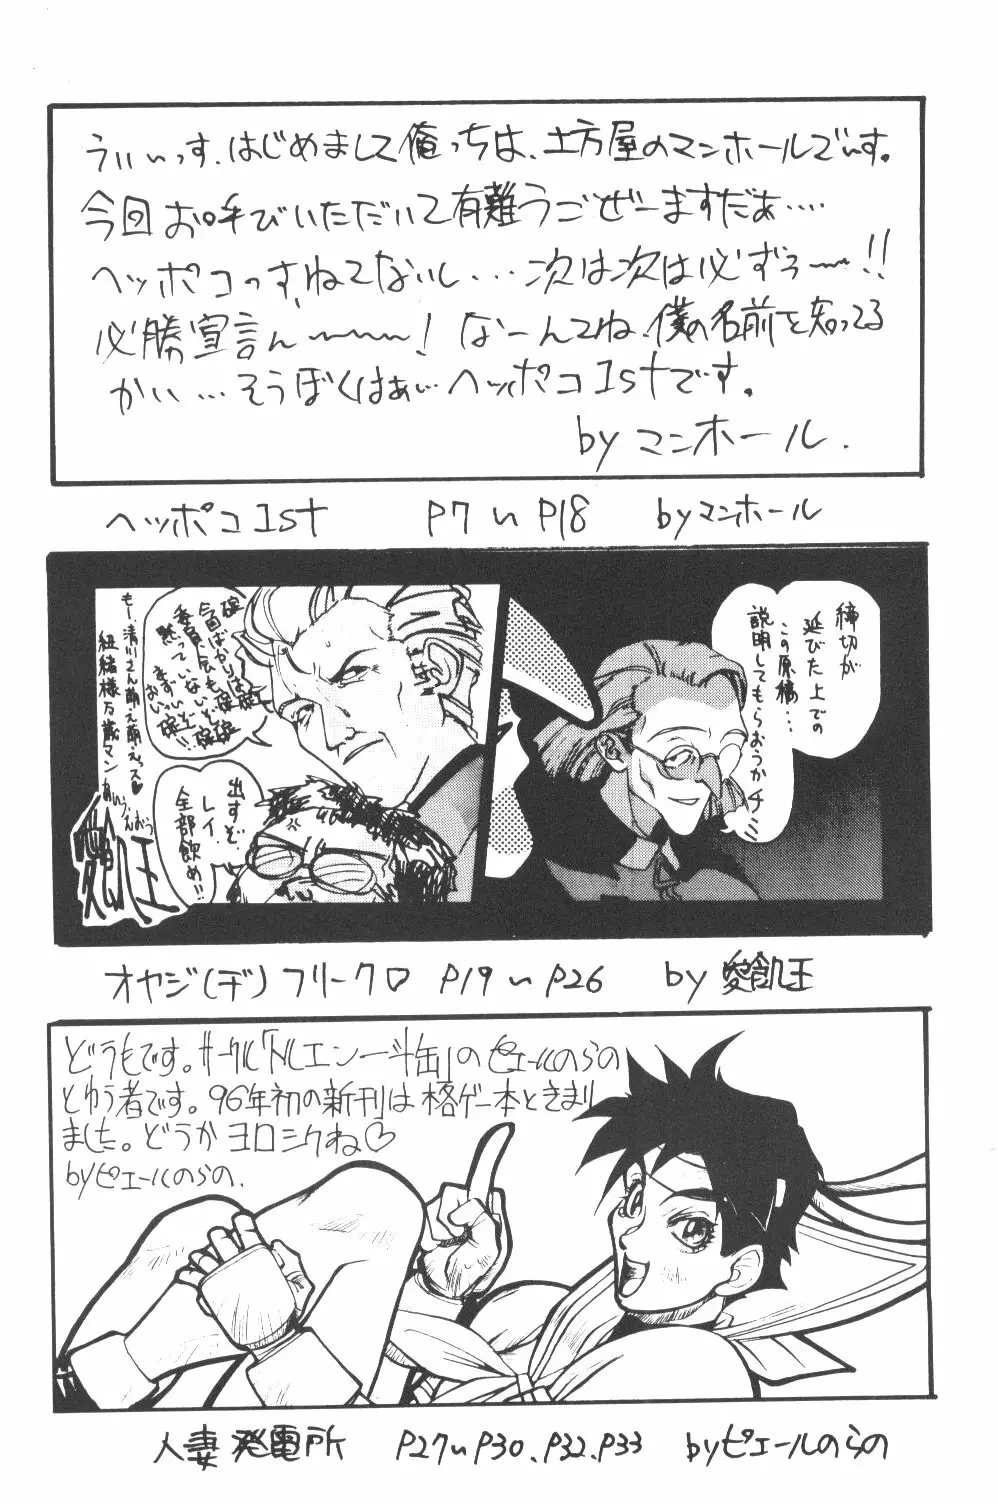 うぃぃっす、はじめまして俺っちは、土方屋のマンホールでぃす。
今回お呼びいただいて有難うごぜーますだぁ‥‥
ヘッポコっすねてないし‥‥次は次は必ずうー〜!!
必勝宣言ん〜〜〜! なーんてね、僕の名前を知ってる
かい‥‥そうぼくはぁぃヘッポコ1stです。
by マンホール.
ヘッポコ1st P7〜P18 byマンホール
締切が
延びた上での
この原稿‥‥
説明してもらおうか
碇
今回ばかりは
委員会も
黙っていないぞ
まずいぞ
おい
碇!!
出すぞ
レイ
全部飲め!!
もー清川さん萌え萌えっス♡
紐緒様万歳マン
愛飢王
オヤジ(デ)フリークロ P19〜P26 by 愛飢王
どうもです。サークル「トルエン一斗缶」のピエールのらの
とゆう者です。96年初の新刊は格ゲー本ときまり
ました。どうかヨロシクね♡
byピエールのらの.
人妻発電所 P27〜P30、P32、P33 byピエールのらの